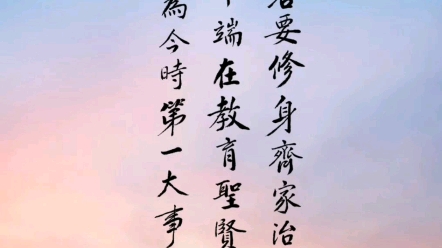 要修身齊家治
端在教育聖賢
為今時第一大事